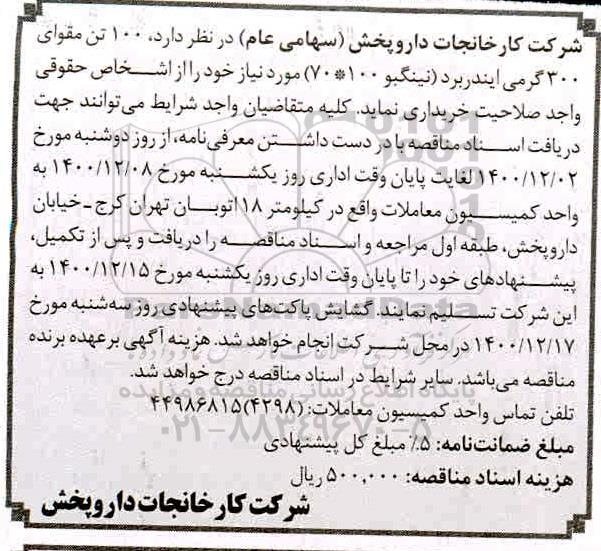 شرکت کارخانجات داروپخش (سهامی عام) در نظر دارد، ۱۰۰ تن مقوای
۳۰۰ گرمی ایندربرد (نینگبو ۱۰۰*۷۰) مورد نیاز خود را از اشخاص حقوقی
واجد صلاحیت خریداری نماید. کلیه متقاضیان واجد شرایط می‌توانند جهت
دریافت اسناد مناقصه با در دست داشتن معرفی‌نامه، از روز دوشنبه مورخ
۱۴۰۰/۱۲/۰۲ لغایت پایان وقت اداری روز یکشنبه مورخ ۱۴۰۰/۱۲/۰۸ به
واحد کمیسیون معاملات واقع در کیلومتر ۱۸ اتوبان تهران کرج ـ خیابان
داروپخش، طبقه اول مراجعه و اسناد مناقصه را دریافت و پس از تکمیل،
پیشنهادهای خود را تا پایان وقت اداری روز یکشنبه مورخ ۱۴۰۰/۱۲/۱۵ به
این شرکت تسلیم نمایند. گشایش پاکت‌های پیشنهادی روز سه‌شنبه مورخ
۱۴۰۰/۱۲/۱۷ در محل شرکت انجام خواهد شد. هزینه آگهی برعهده برنده
مناقصه می‌باشد. سایر شرایط در اسناد مناقصه درج خواهد شد.
پایگاه اطلاع رسانی مناقصه و مزایده
تلفن تماس واحد کمیسیون معاملات: (۴۲۹۸) ۴۴۹۸۶۸۱۵
۰۲۱-۸۸۳۴۹۶۷۰-۵
مبلغ ضمانت‌نامه: ۵٪ مبلغ کل پیشنهادی
هزینه اسناد مناقصه: ۵۰۰,۰۰۰ ریال
شرکت کارخانجات داروپخش